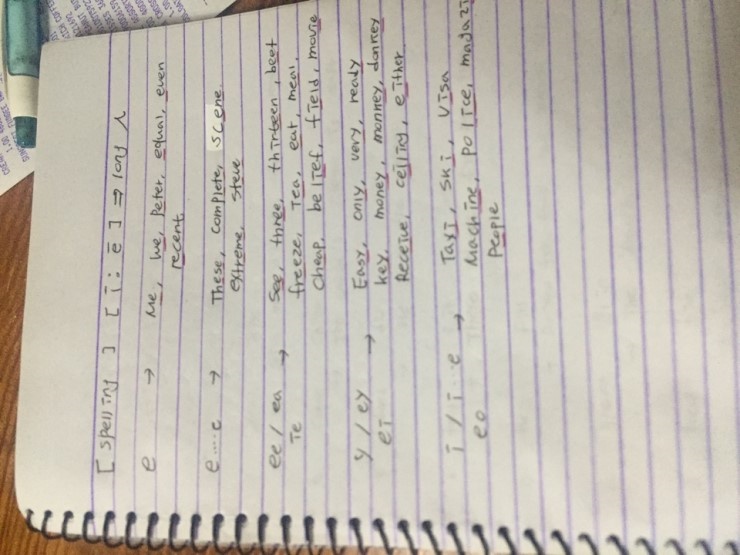 [ spelling ] [ i: ē ] ⇒ long
e → Me, We, Peter, equal, even
recent
e....e → These, complete, scene
extreme, Steve
ee / ea → See, three, thirteen, beet
ie freeze, Tea, eat, meal,
cheap, belief, field, movie
y / ey → Easy, only, very, ready
ei key, money, monkey, donkey
Receive, ceiling, either
i / i...e → Taxi, Ski, Visa
eo Machine, police,
People